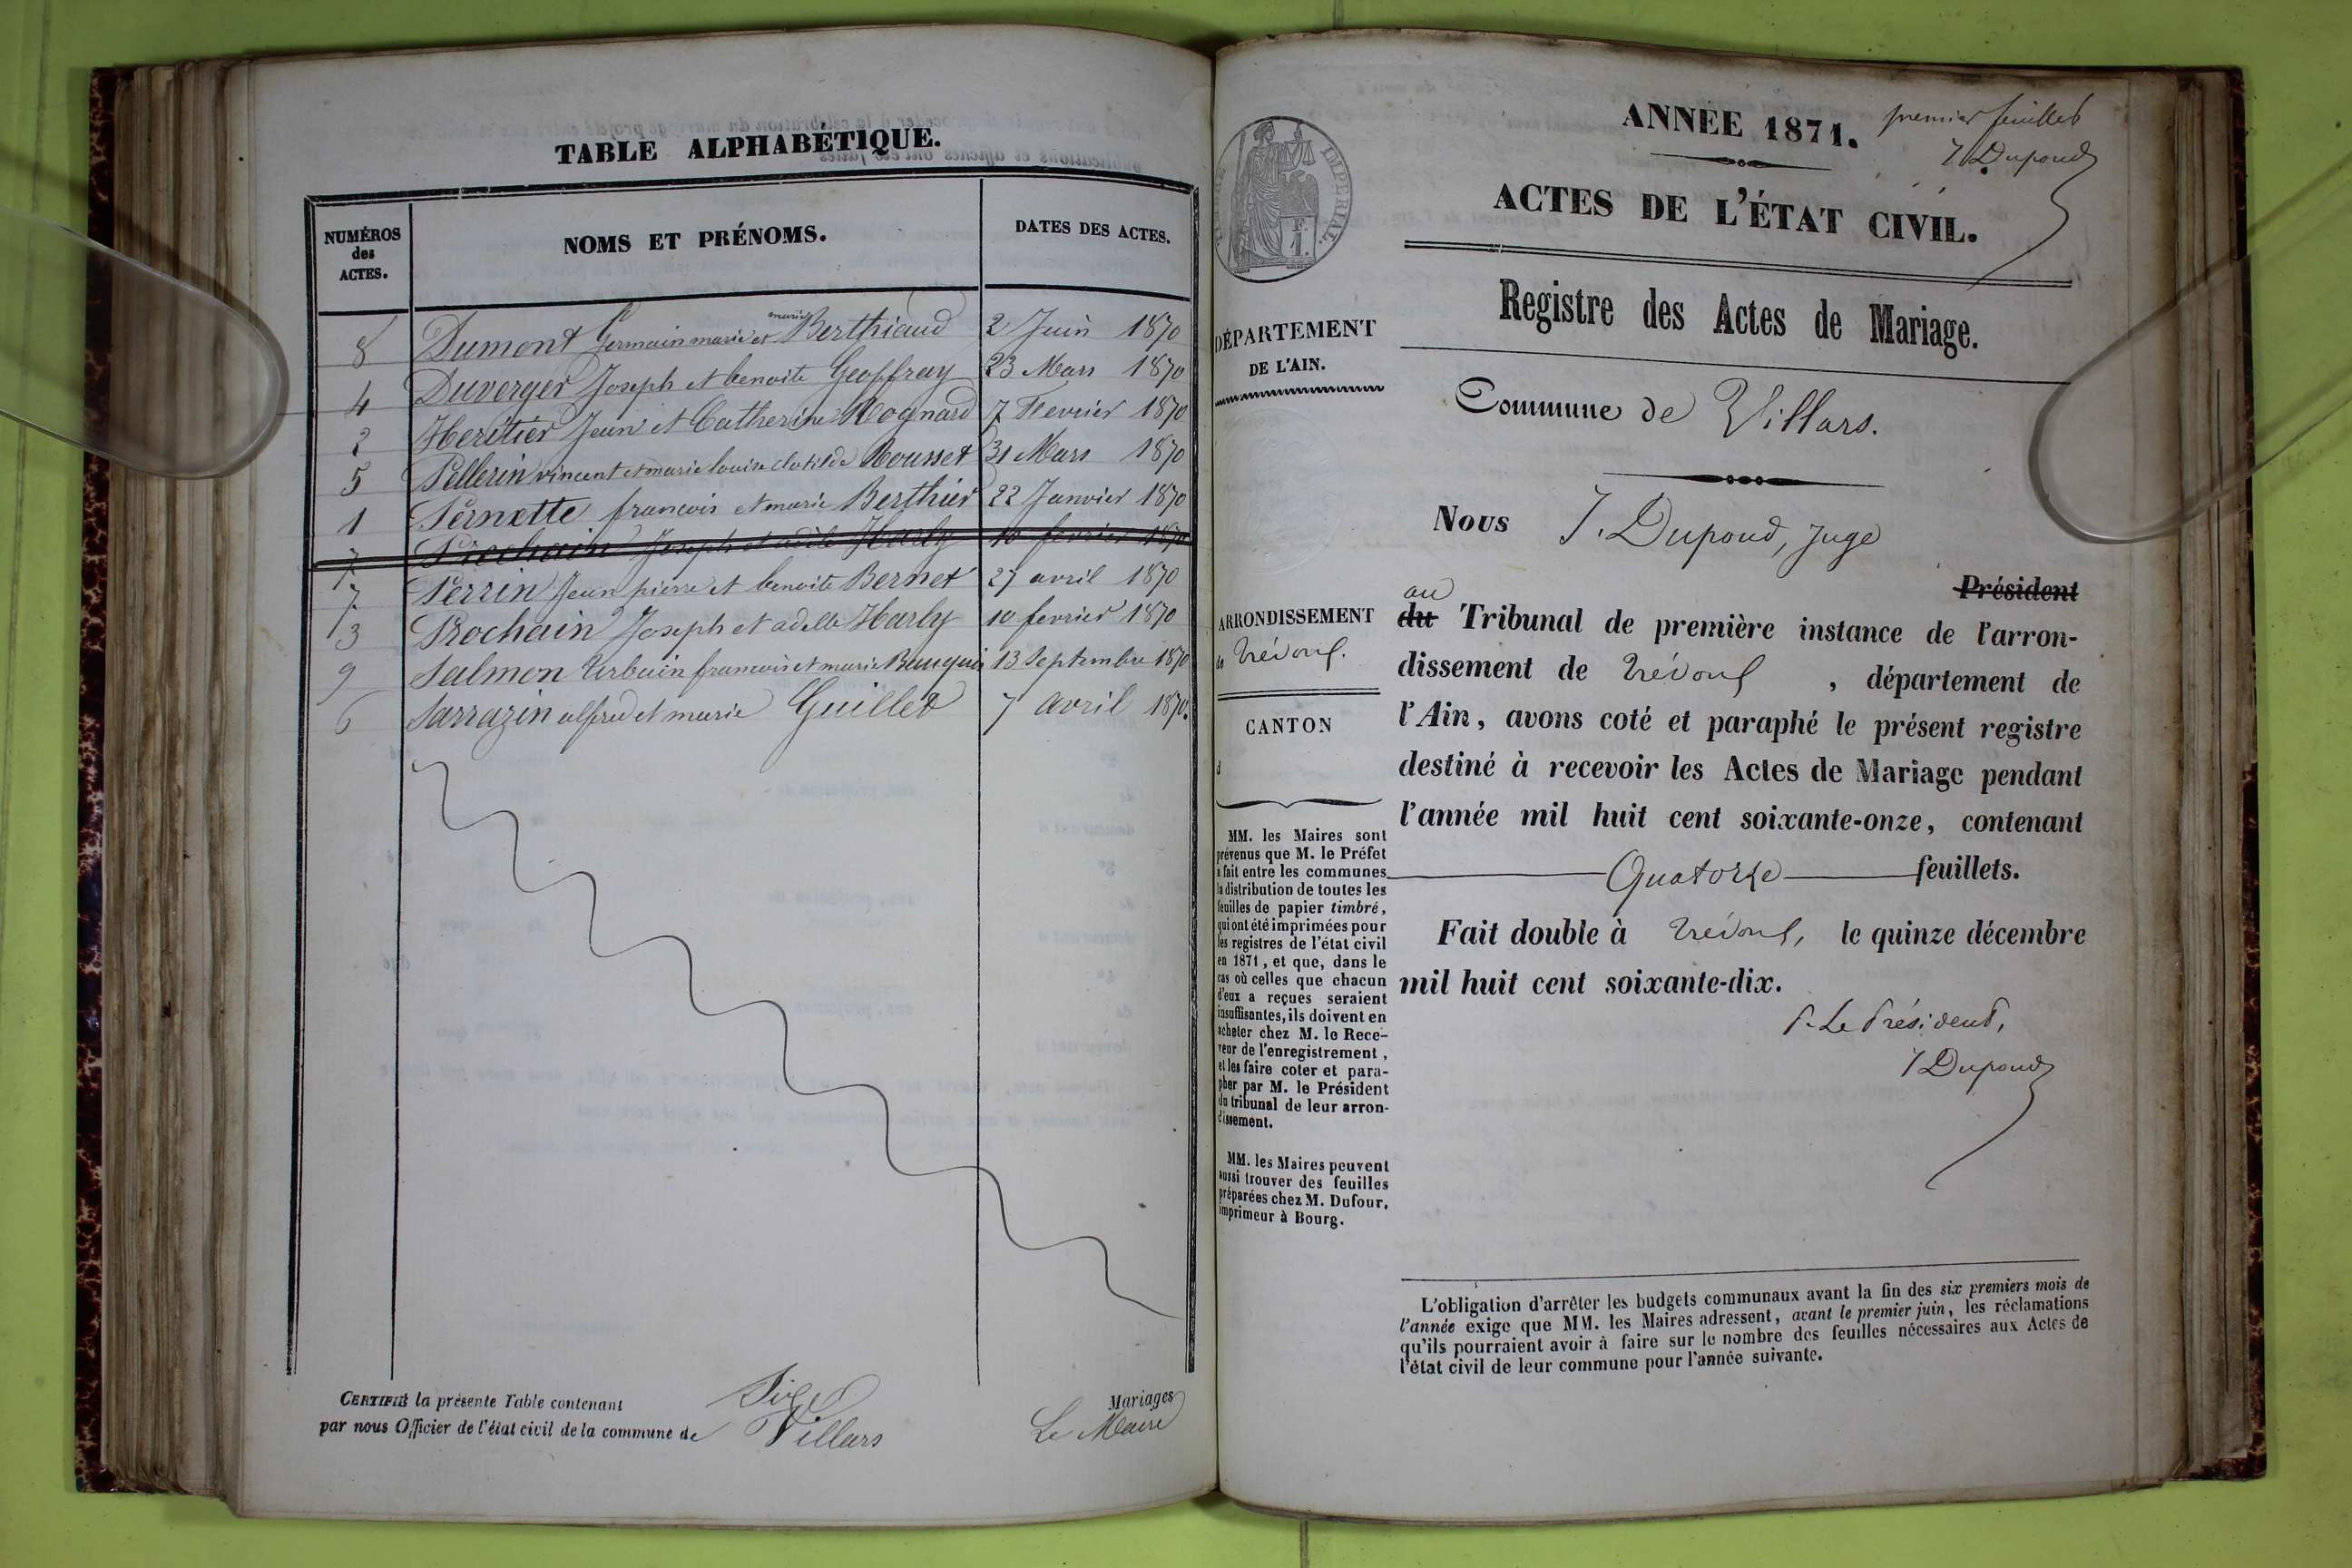 TABLE ALPHABÉTIQUE.
NUMÉROS
des
ACTES.
NOMS ET PRÉNOMS.
DATES DES ACTES.
8 Dumont Germain marie et marie Berthiaud 2 Juin 1870
4 Duverger Joseph et benoite Geoffray 23 Mars 1870
2 Heritier Jean et Catherine Mognard 7 Fevrier 1870
5 Pellerin vincent et marie louise clotilde Mousset 31 Mars 1870
1 Pernette francois et marie Berthier 22 Janvier 1870
7 Prochain Joseph et adele Harly 10 fevrier 1870
7 Perrin Jean pierre et benoite Bernet 27 avril 1870
3 Prochain Joseph et adelle Harly 10 fevrier 1870
9 Salmon Urbain francois et marie 13 Septembre 1870
6 Sarrazin alfred et marie Guillet 7 avril 1870.
CERTIFIÉ la présente Table contenant Mariages
par nous Officier de l'état civil de la commune de Villars Le Maire
ANNÉE 1871.
premier feuillet
J Dupond
ACTES DE L'ÉTAT CIVIL.
IMPERIAL.
F.
1.
Registre des Actes de Mariage.
DÉPARTEMENT
DE L'AIN.
Commune de Villars.
Nous J. Dupond, Juge
Président
au
du Tribunal de première instance de l'arron-
dissement de Trévoux, département de
l'Ain, avons coté et paraphé le présent registre
destiné à recevoir les Actes de Mariage pendant
l'année mil huit cent soixante-onze, contenant
Quatorze feuillets.
Fait double à Trévoux, le quinze décembre
mil huit cent soixante-dix.
P. Le Président,
J Dupond
ARRONDISSEMENT
de Trévoux.
CANTON
d
MM. les Maires sont
prévenus que M. le Préfet
a fait entre les communes
la distribution de toutes les
feuilles de papier timbré,
qui ont été imprimées pour
les registres de l'état civil
en 1871, et que, dans le
cas où celles que chacun
d'eux a reçues seraient
insuffisantes, ils doivent en
acheter chez M. le Rece-
veur de l'enregistrement,
et les faire coter et para-
pher par M. le Président
du tribunal de leur arron-
dissement.
MM. les Maires peuvent
aussi trouver des feuilles
préparées chez M. Dufour,
imprimeur à Bourg.
L'obligation d'arrêter les budgets communaux avant la fin des six premiers mois de
l'année exige que MM. les Maires adressent, avant le premier juin, les réclamations
qu'ils pourraient avoir à faire sur le nombre des feuilles nécessaires aux Actes de
l'état civil de leur commune pour l'année suivante.